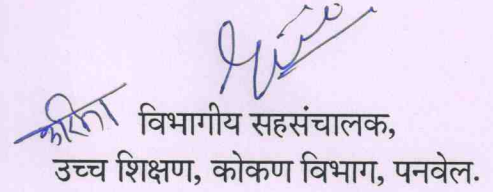 करिता विभागीय सहसंचालक,
उच्च शिक्षण, कोकण विभाग, पनवेल.